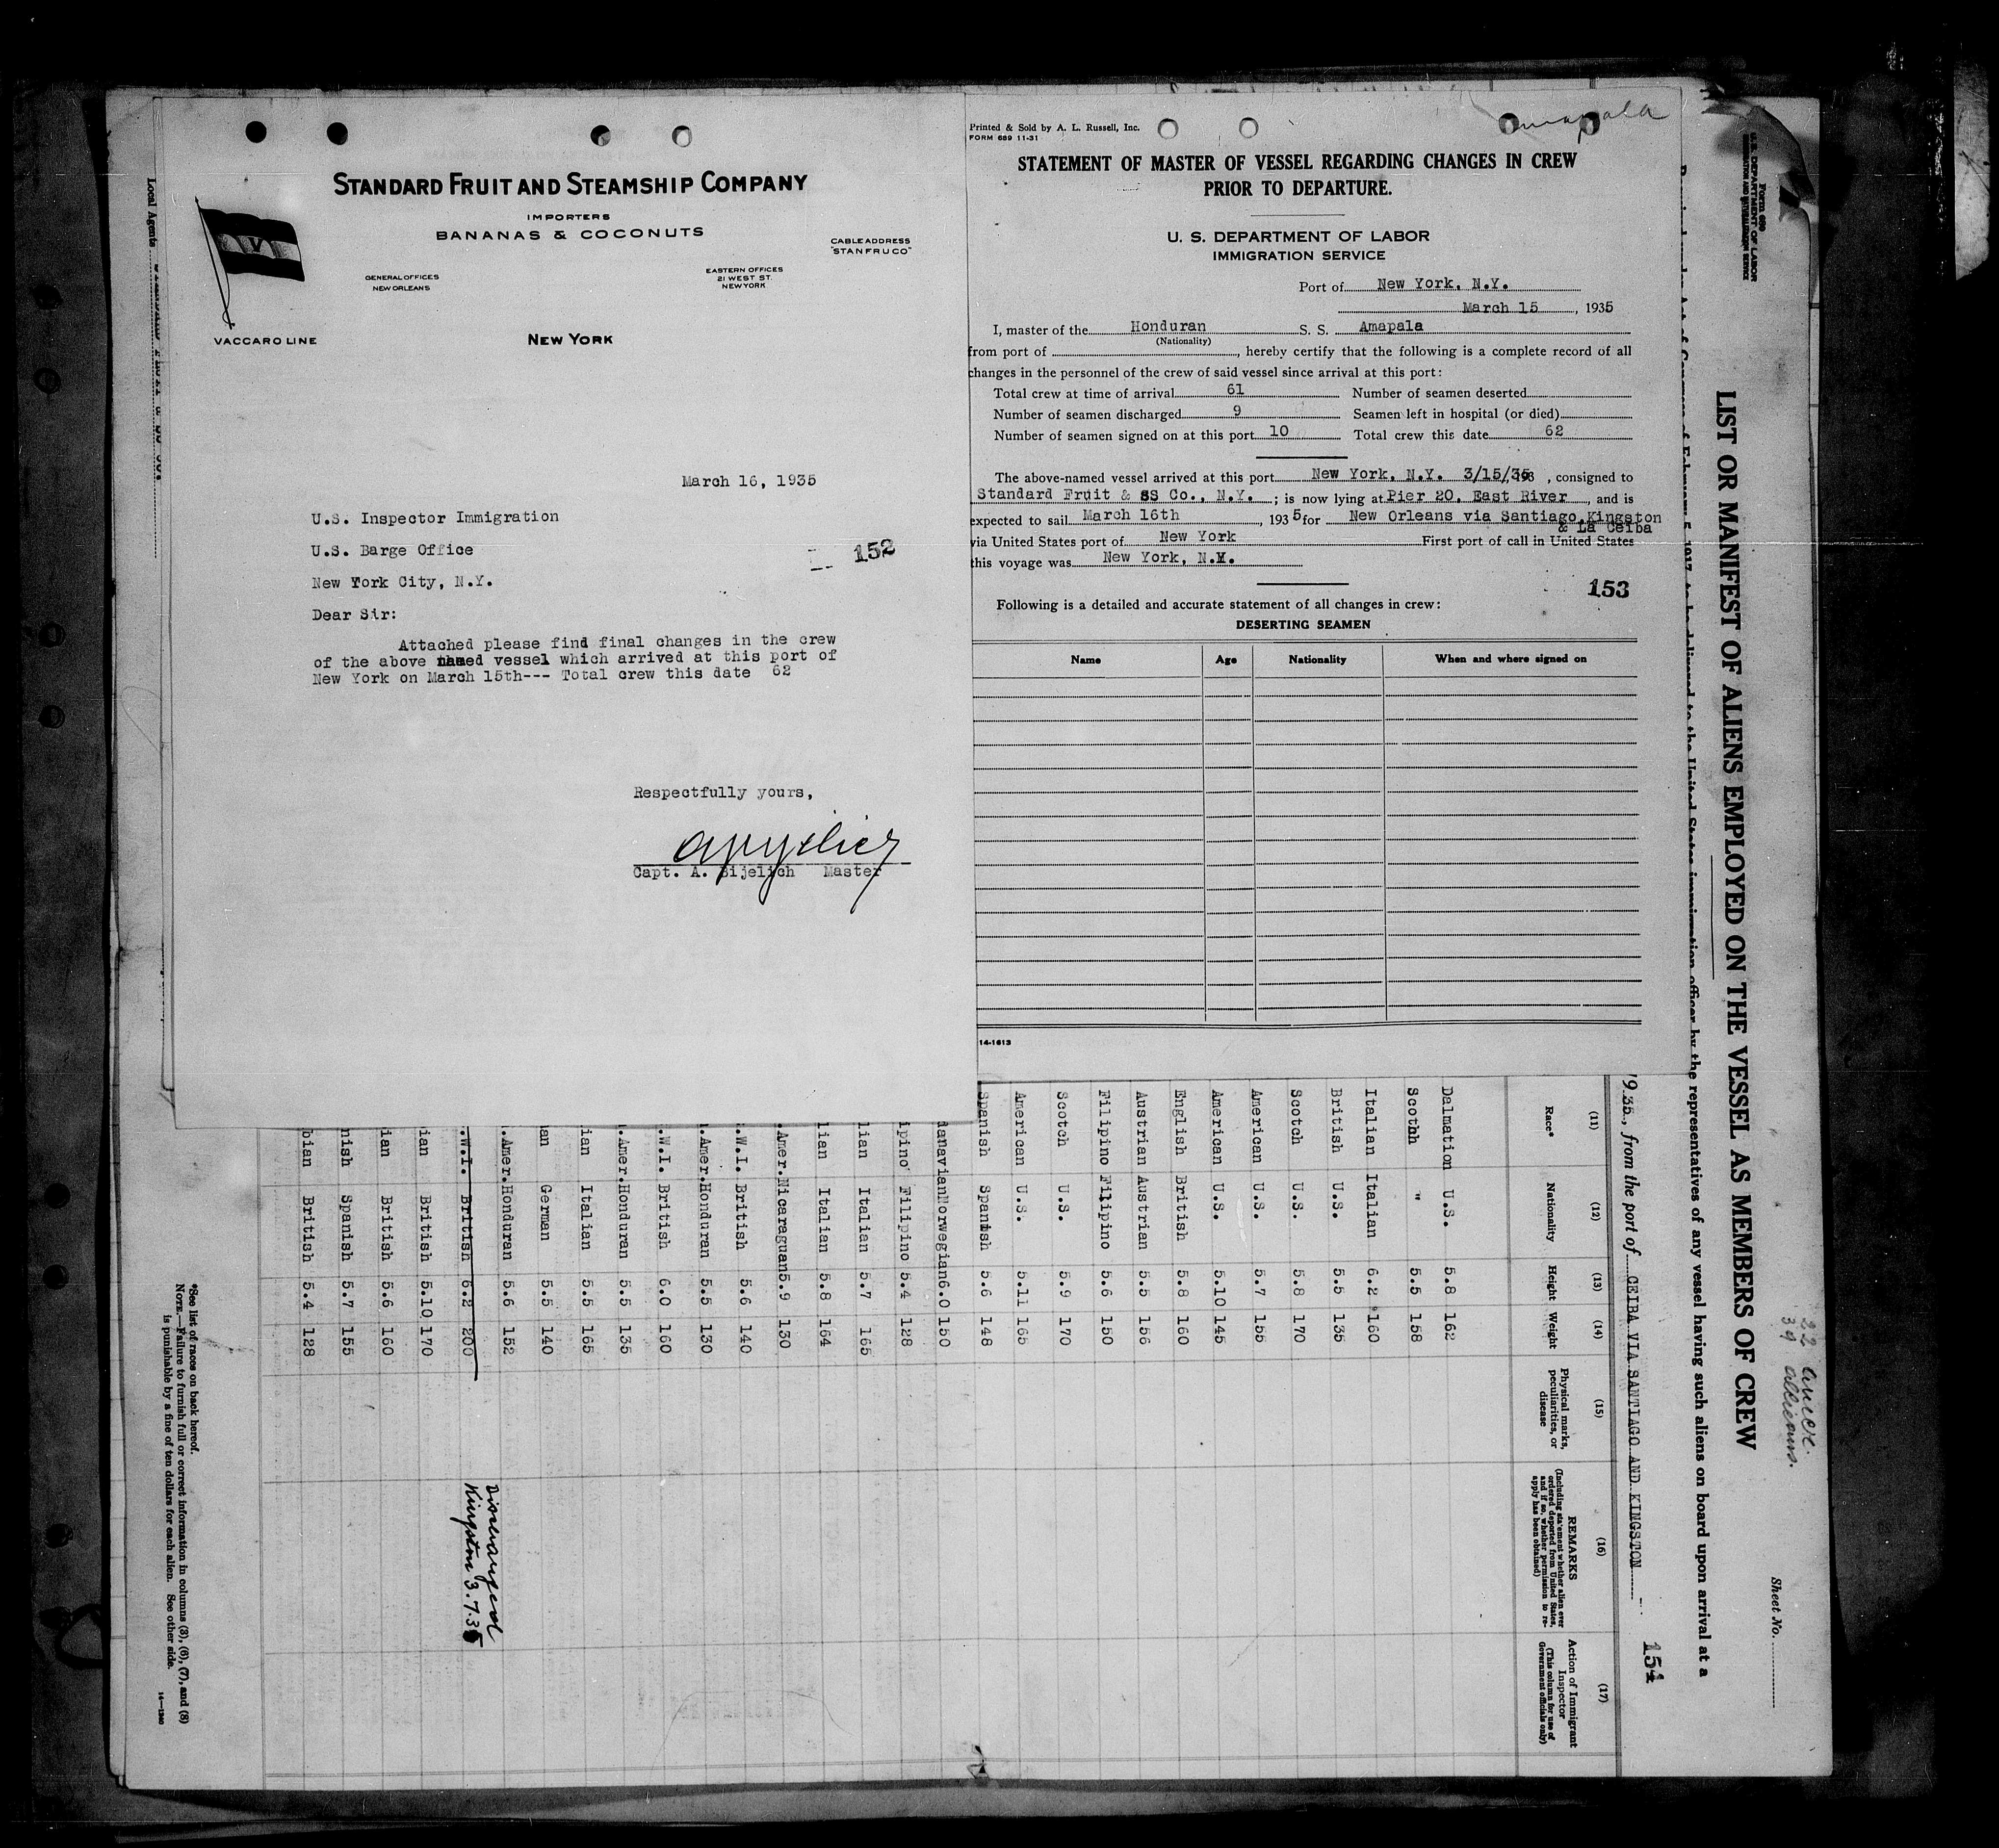 STANDARD FRUIT AND STEAMSHIP COMPANY
IMPORTERS
BANANAS & COCONUTS
CABLE ADDRESS
"STANFRUCO"
GENERAL OFFICES
NEW ORLEANS
EASTERN OFFICES
21 WEST ST.
NEW YORK
V
VACCARO LINE
NEW YORK
March 16, 1935
U.S. Inspector Immigration
U.S. Barge Office
152
New York City, N.Y.
Dear Sir:
Attached please find final changes in the crew
of the above named vessel which arrived at this port of
New York on March 15th--- Total crew this date 62
Respectfully yours,
Capt. A. Bijelich Master
Amapala
Printed & Sold by A. L. Russell, Inc.
FORM 689 11-31
STATEMENT OF MASTER OF VESSEL REGARDING CHANGES IN CREW
PRIOR TO DEPARTURE.
U. S. DEPARTMENT OF LABOR
IMMIGRATION SERVICE
Port of New York, N.Y.
March 15, 1935
I, master of the Honduran S. S. Amapala
(Nationality)
from port of , hereby certify that the following is a complete record of all
changes in the personnel of the crew of said vessel since arrival at this port:
Total crew at time of arrival 61 Number of seamen deserted
Number of seamen discharged 9 Seamen left in hospital (or died)
Number of seamen signed on at this port 10 Total crew this date 62
The above-named vessel arrived at this port New York, N.Y. 3/15/35, consigned to
Standard Fruit & SS Co., N.Y. ; is now lying at Pier 20, East River, and is
expected to sail March 16th, 1935 for New Orleans via Santiago, Kingston
& La Ceiba
via United States port of New York First port of call in United States
this voyage was New York, N.Y.
153
Following is a detailed and accurate statement of all changes in crew:
DESERTING SEAMEN
Name Age Nationality When and where signed on
14-1613
Local Agents
Form 689
U.S. DEPARTMENT OF LABOR
IMMIGRATION AND NATURALIZATION SERVICE
LIST OR MANIFEST OF ALIENS EMPLOYED ON THE VESSEL AS MEMBERS OF CREW
22
39
Sheet No.
by the representatives of any vessel having such aliens on board upon arrival at a
19 35, from the port of CEIBA VIA SANTIAGO AND KINGSTON
154
(11) (12) (13) (14) (15) (16) (17)
Race* Nationality Height Weight Physical marks, peculiarities, or disease REMARKS (Including statement whether alien ever ordered deported from United States, and if so, whether permission to reapply has been obtained) Action of Immigrant Inspector (This column for use of Government officials only)
Dalmation U.S. 5.8 162
Scothh " 5.5 158
Italian Italian 6.2 160
British U.S. 5.5 135
Scotch U.S. 5.8 170
American U.S. 5.7 155
American U.S. 5.10 145
English British 5.8 160
Austrian Austrian 5.5 156
Filipino Filipino 5.6 150
Scotch U.S. 5.9 170
American U.S. 5.11 165
Spanish Spanish 5.6 148
danavian Norwegian 6.0 150
ipino Filipino 5.4 128
lian Italian 5.7 165
lian Italian 5.8 164
.Amer. Nicaraguan 5.9 130
.W.I. British 5.6 140
.Amer. Honduran 5.5 130
.W.I. British 6.0 160
.Amer. Honduran 5.5 135
ian Italian 5.5 165
an German 5.5 140
.Amer. Honduran 5.6 152
.W.I. British 6.2 200 Discharged Kingston 3.7.35
ian British 5.10 170
ian British 5.6 160
nish Spanish 5.7 155
bian British 5.4 128
*See list of races on back hereof.
NOTE.—Failure to furnish full or correct information in columns (3), (6), (7), and (8)
is punishable by a fine of ten dollars for each alien. See other side.
14—1240